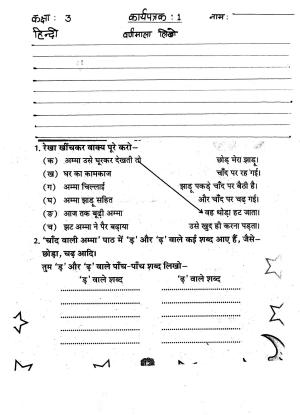 कक्षा : 3 कार्यपत्रक : 1 नाम :
हिन्दी वर्णमाला लिखो
1. रेखा खींचकर वाक्य पूरे करो–
(क) अम्मा उसे घूरकर देखती तो छोड़ मेरा झाड़ू।
(ख) घर का कामकाज चाँद पर रह गई।
(ग) अम्मा चिल्लाई झाड़ू पकड़े चाँद पर बैठी है।
(घ) अम्मा झाड़ू सहित और चाँद पर चढ़ गई।
(ङ) आज तक बूढ़ी अम्मा वह थोड़ा हट जाता।
(च) झट अम्मा ने पैर बढ़ाया उसे खुद ही करना पड़ता।
2. 'चाँद वाली अम्मा' पाठ में 'ड़' और 'ढ़' वाले कई शब्द आए हैं, जैसे–
छोड़ा, चढ़ आदि।
तुम 'ड़' और 'ढ़' वाले पाँच-पाँच शब्द लिखो–
'ड़' वाले शब्द 'ढ़' वाले शब्द